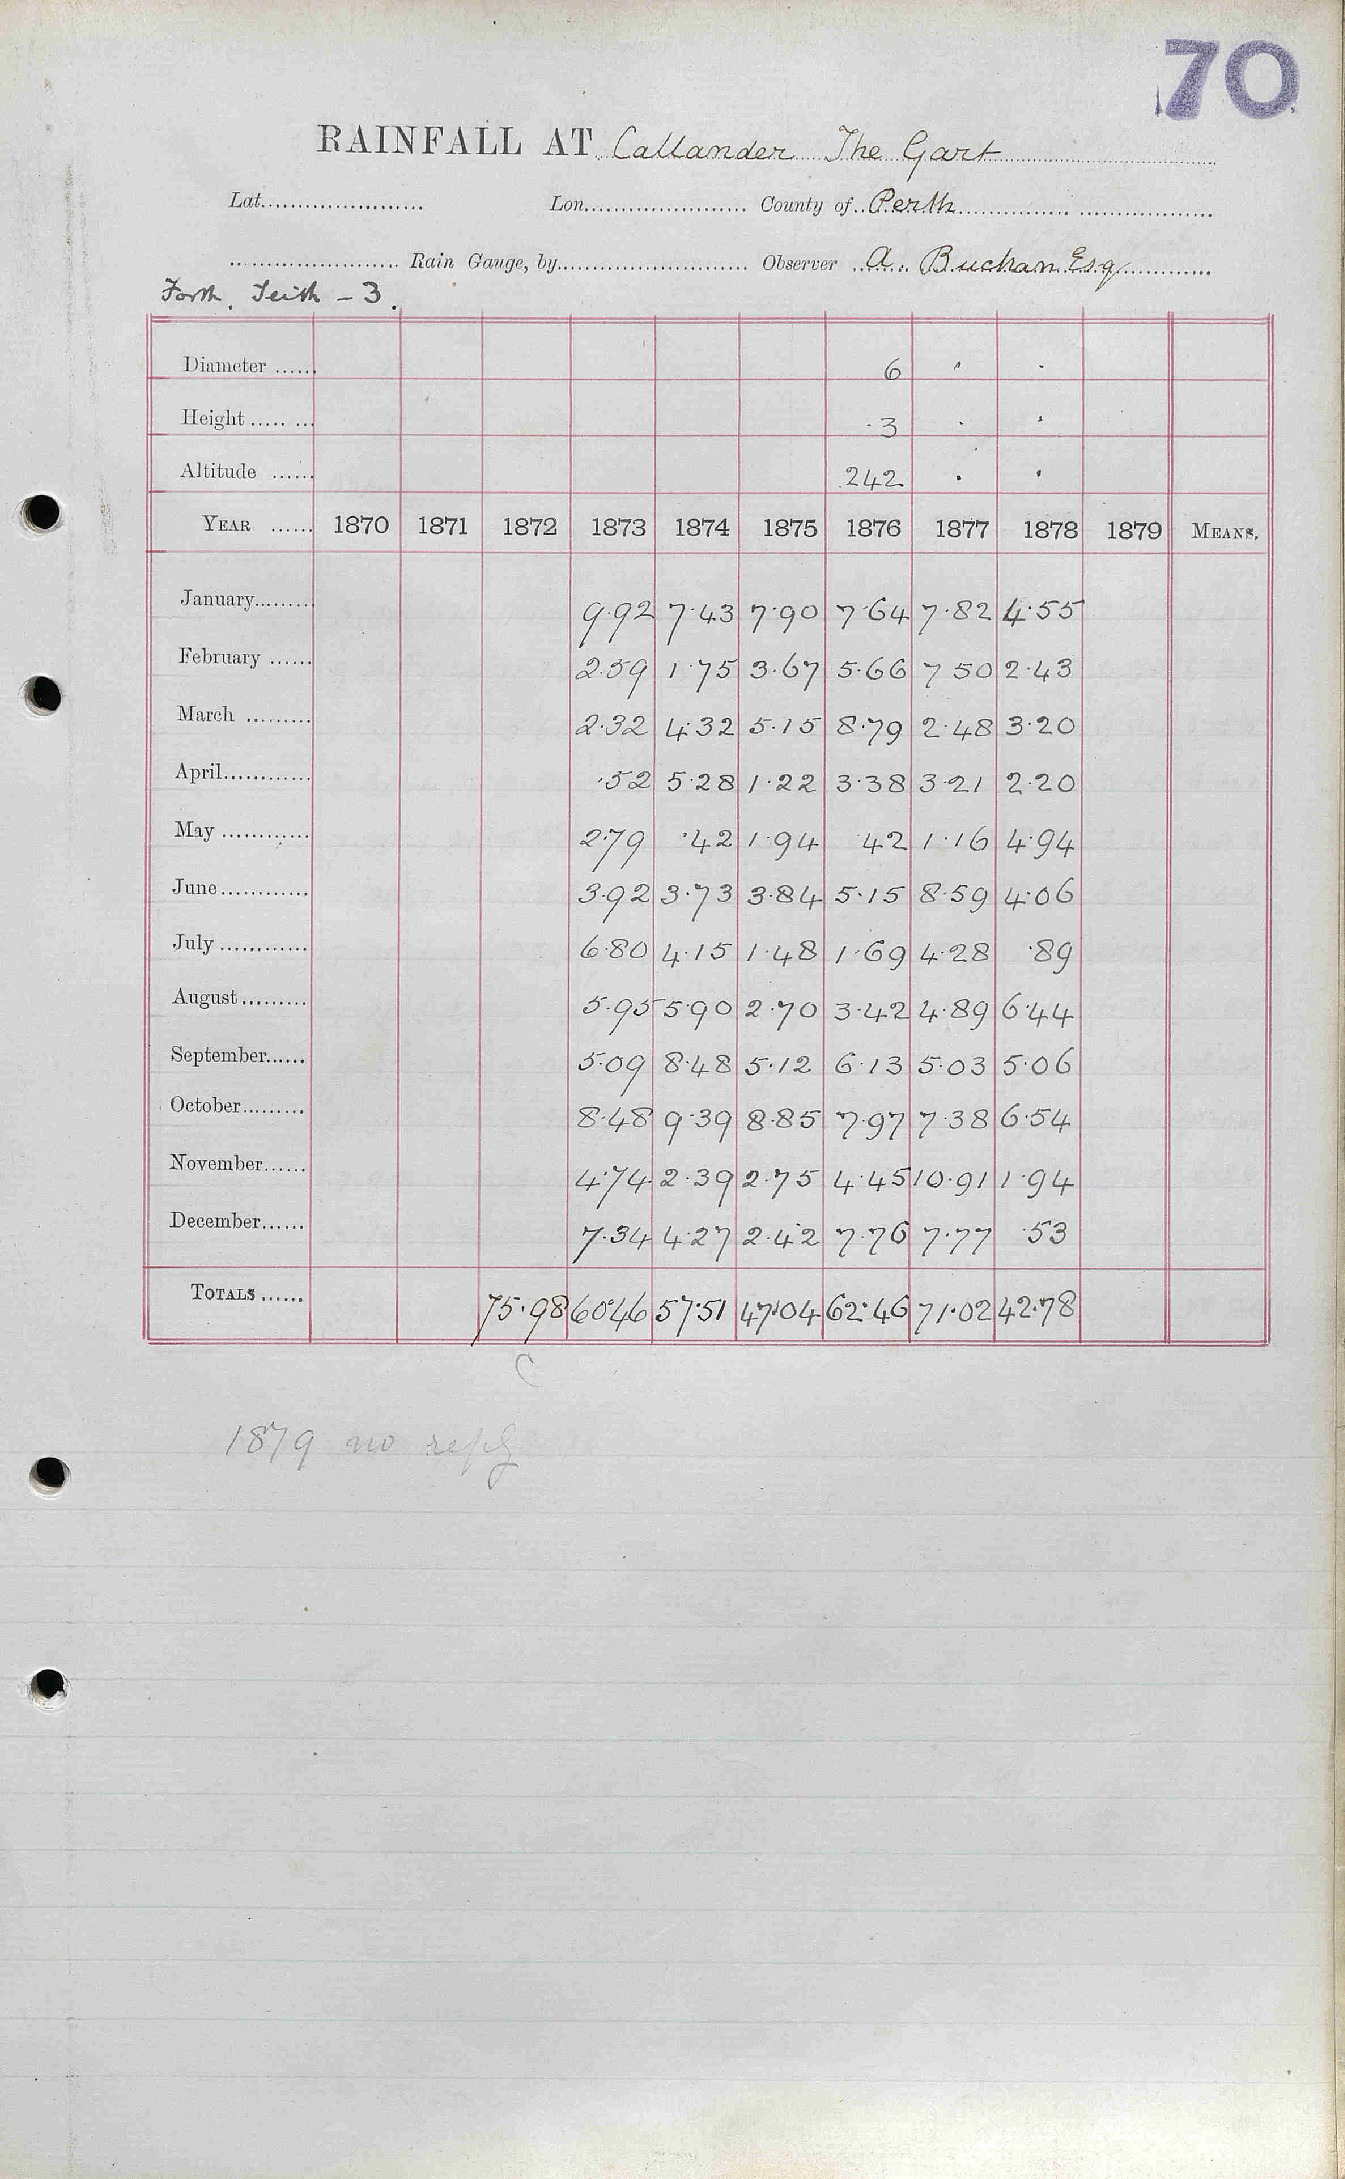 70
RAINFALL AT Callander The Gart
Lat. Lon. County of Perth
Rain Gauge, by Observer A. Buchan Esq
Forth, Teith - 3.
Diameter 6 " "
Height .3 " "
Altitude 242 " "
YEAR 1870 1871 1872 1873 1874 1875 1876 1877 1878 1879 MEANS.
January 9.92 7.43 7.90 7.64 7.82 4.55
February 2.59 1.75 3.67 5.66 7.50 2.43
March 2.32 4.32 5.15 8.79 2.48 3.20
April .52 5.28 1.22 3.38 3.21 2.20
May 2.79 .42 1.94 .42 1.16 4.94
June 3.92 3.73 3.84 5.15 8.59 4.06
July 6.80 4.15 1.48 1.69 4.28 .89
August 5.95 5.90 2.70 3.42 4.89 6.44
September 5.09 8.48 5.12 6.13 5.03 5.06
October 8.48 9.39 8.85 7.97 7.38 6.54
November 4.74 2.39 2.75 4.45 10.91 1.94
December 7.34 4.27 2.42 7.76 7.77 .53
TOTALS 75.98 60.46 57.51 47.04 62.46 71.02 42.78
C
1879 no reply